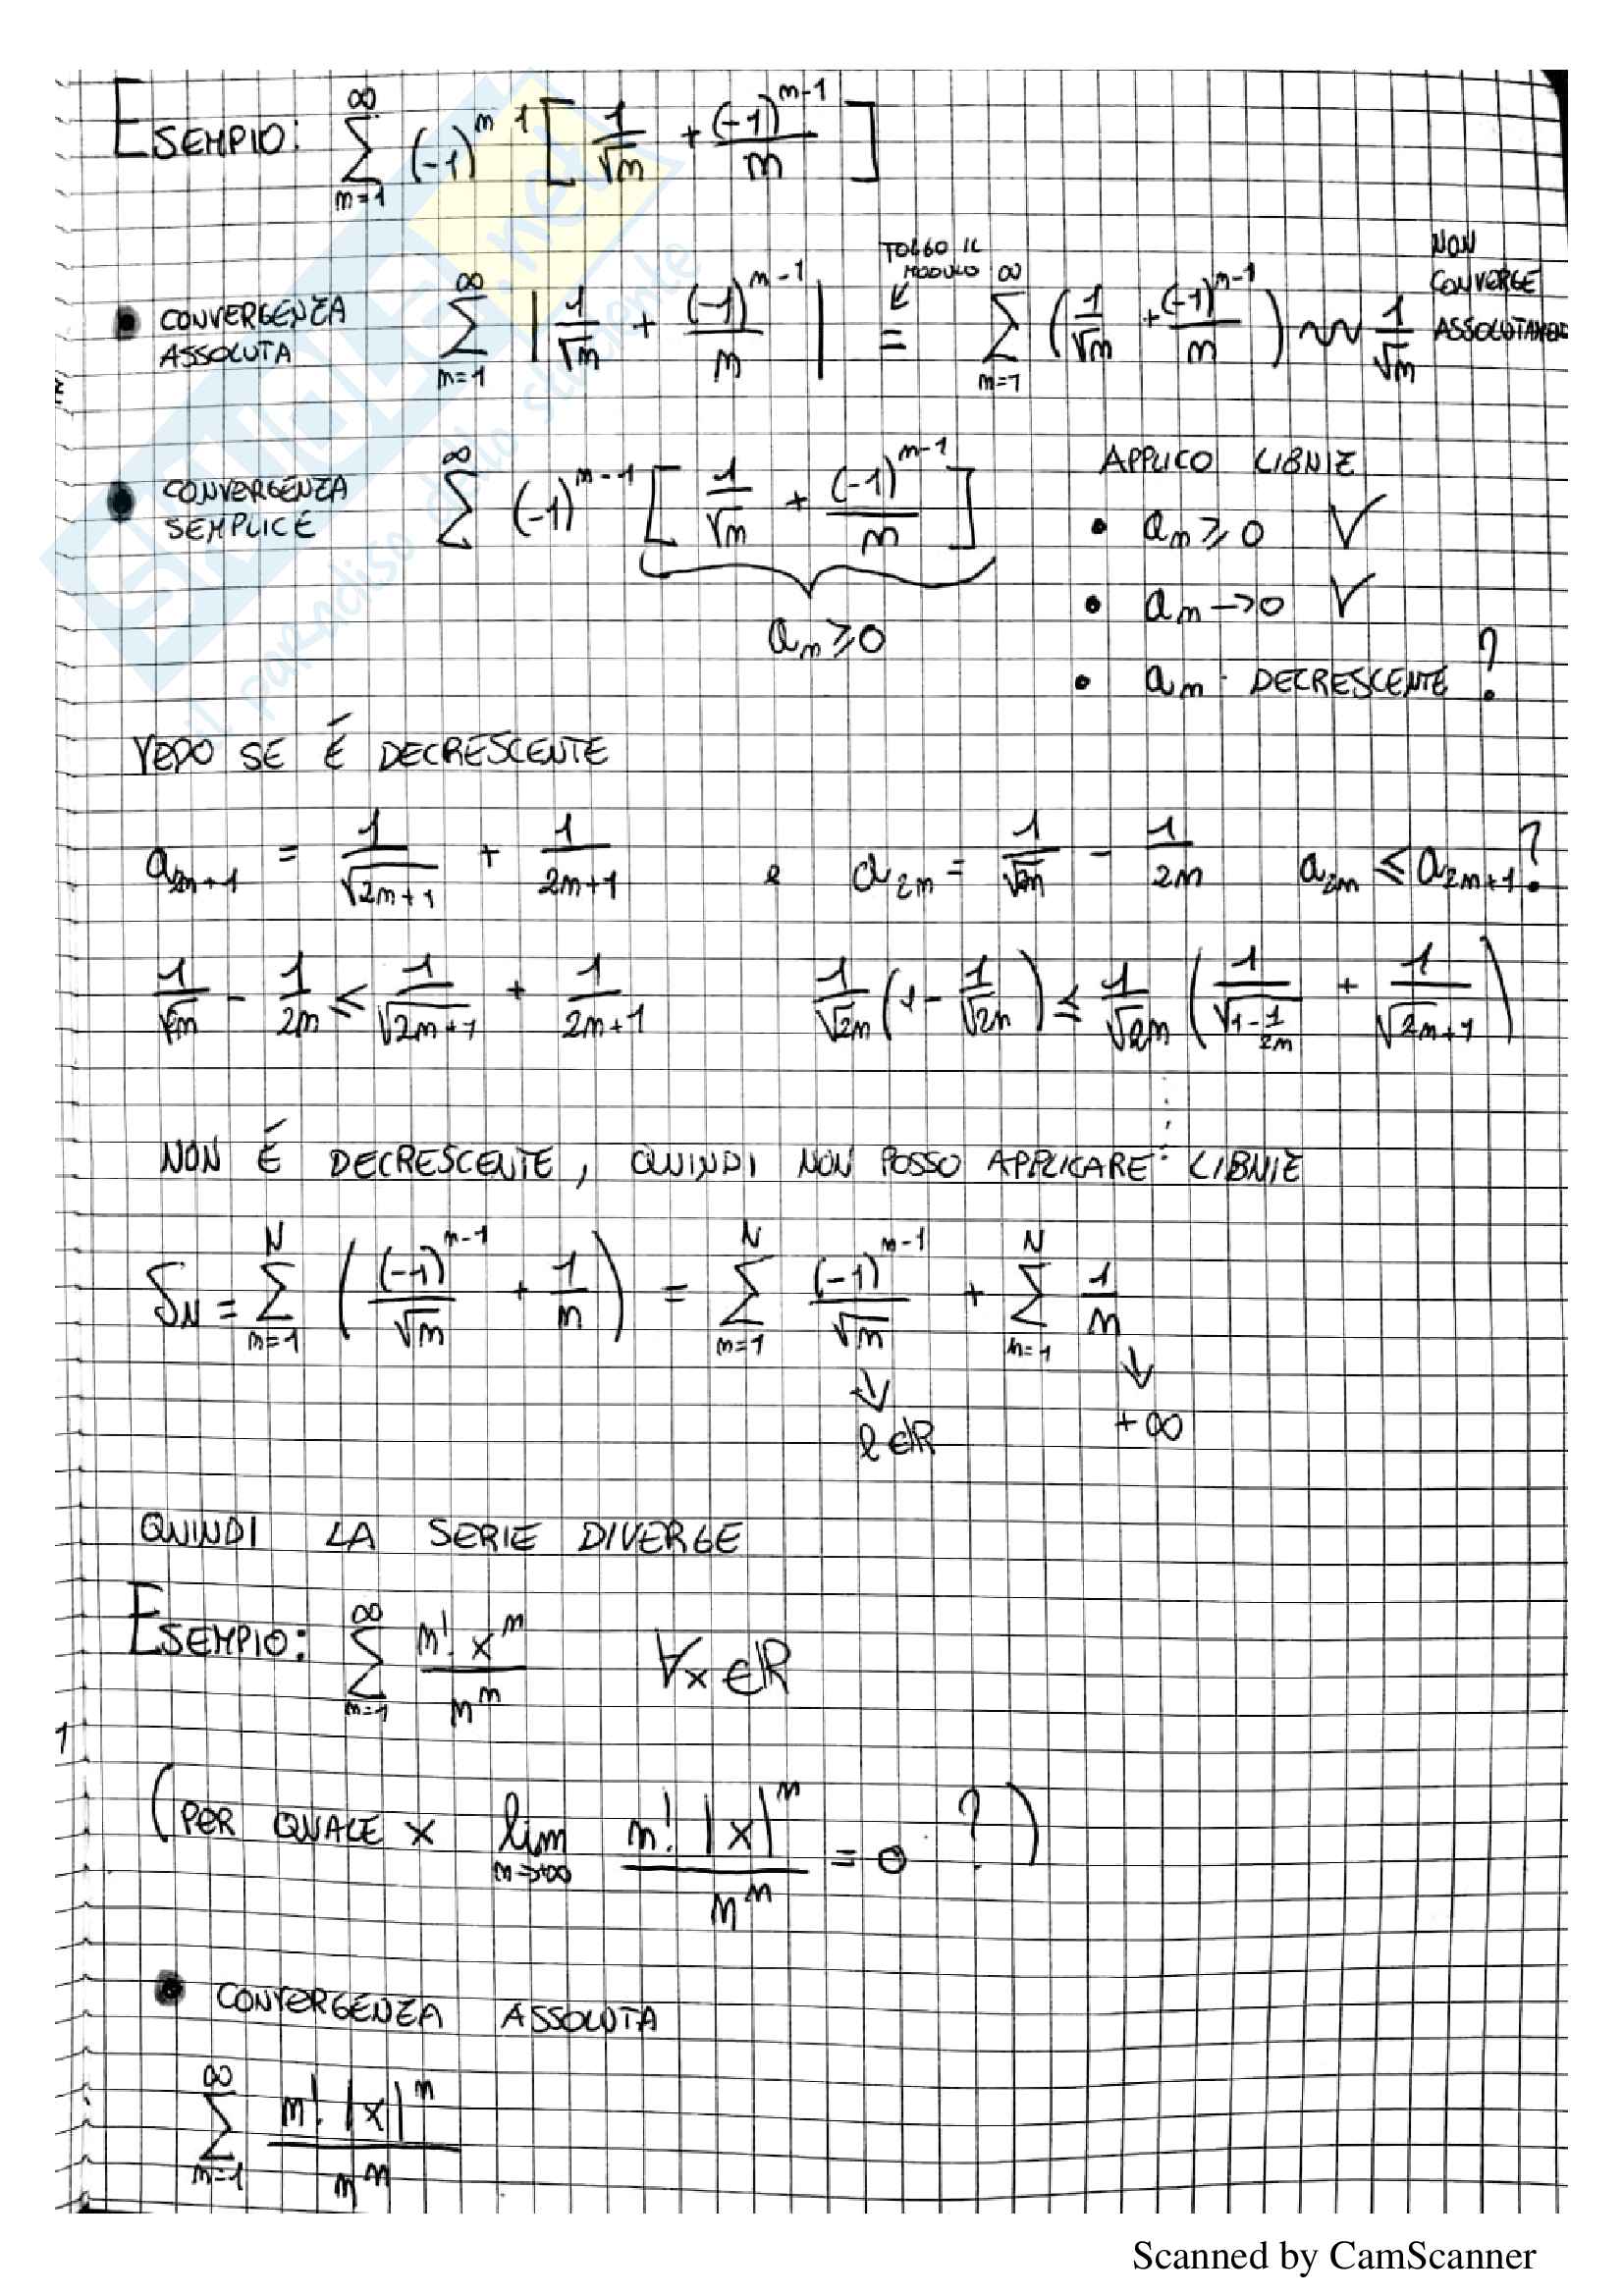 ESEMPIO: ∑_{m=1}^{∞} (-1)^{m-1} [ 1/√m + (-1)^{m-1}/m ]
TOLGO IL MODULO
NON CONVERGE ASSOLUTAMEN
• CONVERGENZA ASSOLUTA ∑_{m=1}^{∞} | 1/√m + (-1)^{m-1}/m | = ∑_{m=1}^{∞} ( 1/√m + (-1)^{m-1}/m ) ~ 1/√m
• CONVERGENZA SEMPLICE ∑^{∞} (-1)^{m-1} [ 1/√m + (-1)^{m-1}/m ]
a_m ≥ 0
APPLICO LIBNIZ
• a_m ≥ 0 V
• a_m → 0 V
• a_m DECRESCENTE ?
VEDO SE É DECRESCENTE
a_{2m+1} = 1/√(2m+1) + 1/(2m+1) e a_{2m} = 1/√(2m) - 1/2m a_{2m} ≤ a_{2m+1} ?
1/√(2m) - 1/2m ≤ 1/√(2m+1) + 1/(2m+1) 1/√2m ( 1 - 1/√2m ) ≤ 1/√2m ( 1/√(1-1/2m) + 1/√(2m+1) )
NON É DECRESCENTE, QUINDI NON POSSO APPLICARE LIBNIZ
S_N = ∑_{m=1}^{N} ( (-1)^{m-1}/√m + 1/m ) = ∑_{m=1}^{N} (-1)^{m-1}/√m + ∑_{m=1}^{N} 1/m
↓ ↓
l ∈ ℝ +∞
QUINDI LA SERIE DIVERGE
ESEMPIO: ∑_{m=1}^{∞} m! x^m / m^m ∀x ∈ ℝ
( PER QUALE x lim_{m→+∞} m! |x|^m / m^m = 0 ? )
• CONVERGENZA ASSOLUTA
∑_{m=1}^{∞} m! |x|^m / m^m
Scanned by CamScanner